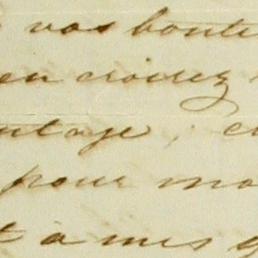 vos bonté
en croirez
ntage, c
pour mo
t à mes